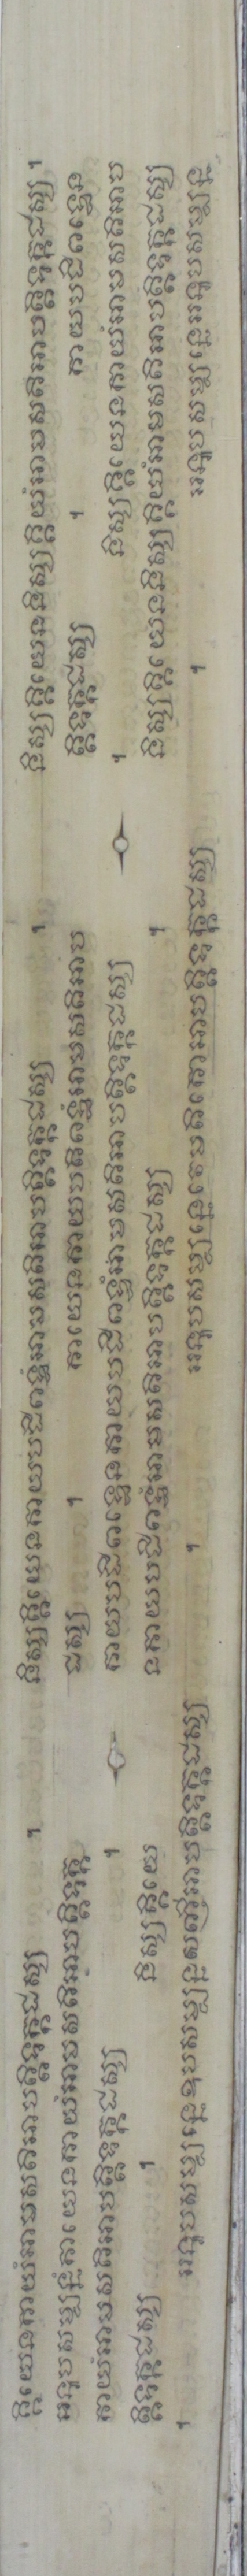 គ្គិយេនកាយំអាមសតិអាបត្តិទុក្កដស្ស ។ និស្សគ្គិយេនកាយបដិពទ្ធំអាមសតិអាបត្តិទុក្កដស្ស ។ និស្សគ្គិយេននិស្សគ្គិយំអាមសតិអាបត្តិទុក្កដស្ស ។
អនុបសម្បន្នំកាយេនកាយំអាមសតិអាបត្តិទុក្ក ដស្ស ។ កាយេនកាយបដិពទ្ធំអាមសតិអាប ត្តិទុក្កដស្ស ។ កាយបដិពទ្ធេន
កាយំអាមសតិអាបត្តិទុក្កដស្ស ។ កាយបដិពទ្ធេនកាយបដិពទ្ធំអាមសតិអាបត្តិទុក្កដស្ស ។ និស្សគ្គិយេនកាយំអាមសតិអាប
ត្តិទុក្កដស្ស ។ និស្សគ្គិយេ នកាយបដិពទ្ធំអាមសតិអាបត្តិទុក្កដស្ស ។ និស្សគ្គិយេននិស្សគ្គិយំអាមសតិអាបត្តិទុក្កដស្ស
។ អនុបសម្បន្នេឧបសម្បន្នសញ្ញីអាបត្តិទុក្កដស្ស ។ អនុបសម្បន្នេវេមតិកោអាបត្តិទុក្កដស្ស ។ អនុបសម្បន្នេអនុបសម្បន្ន